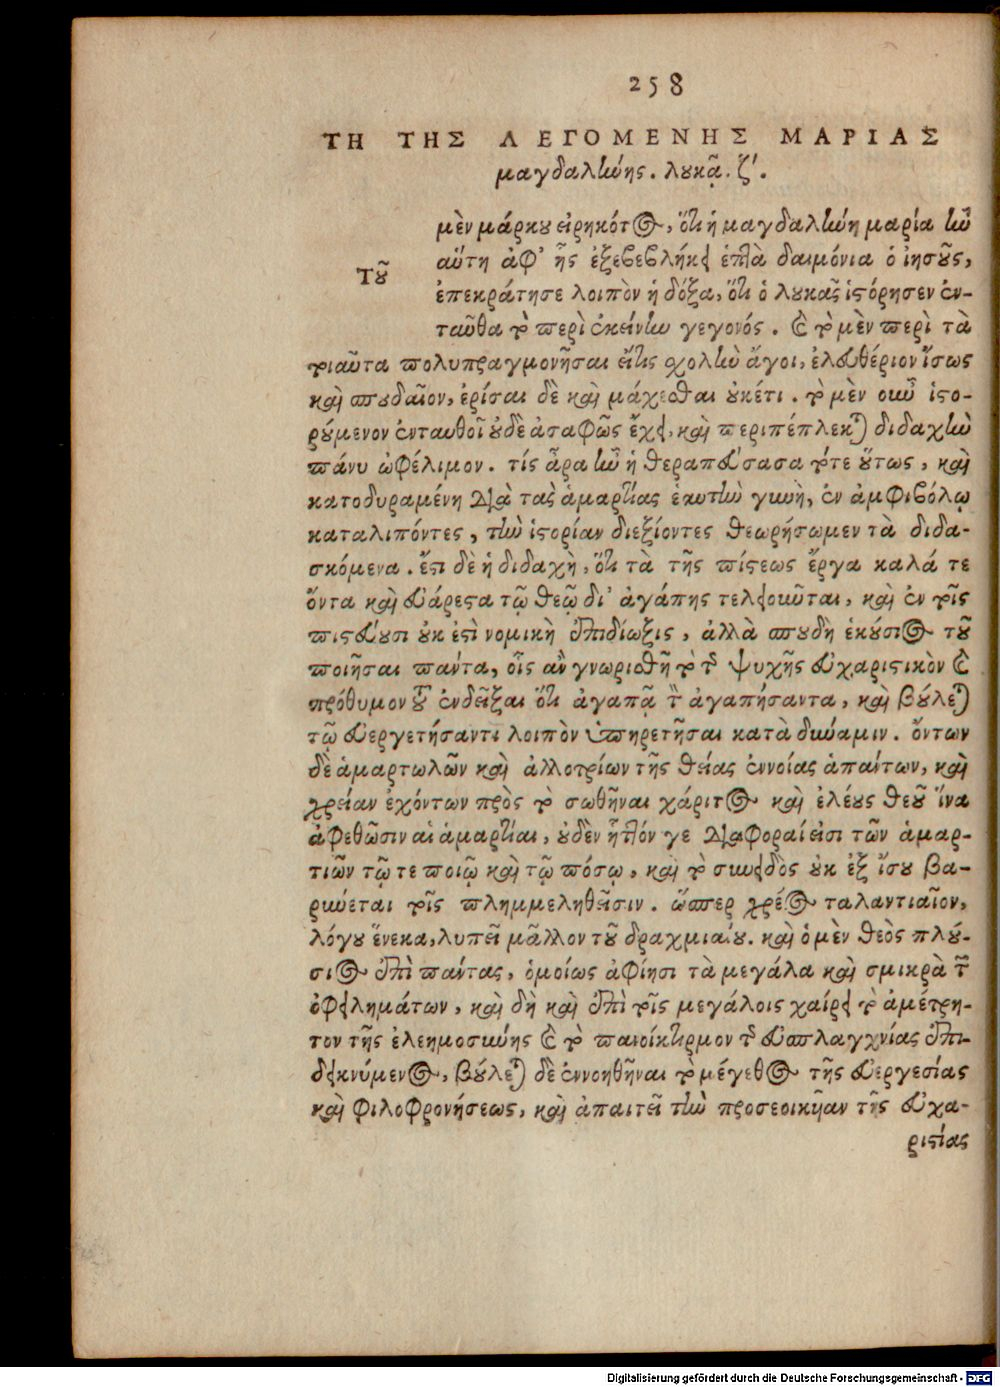 258
ΤΗ ΤΗΣ ΛΕΓΟΜΕΝΗΣ ΜΑΡΙΑΣ
μαγδαλωής. λουκᾷ. ζ'.
Τοῦ
μὲν μάρκου εἰρηκότος, ὅτι ἡ μαγδαληνὴ μαρία ἦν
αὕτη ἀφ' ἧς ἐξεβεβλήκει ἑπτὰ δαιμόνια ὁ ἰησοῦς,
ἐπεκράτησε λοιπὸν ἡ δόξα, ὅτι ὁ λουκᾶς ἱστόρησεν ἐν-
ταῦθα τὸ περὶ ἐκείνην γεγονός. καὶ τὸ μὲν περὶ τὰ
τοιαῦτα πολυπραγμονῆσαι εἴτις σχολὴν ἄγοι, ἐλευθέριον ἴσως
καὶ σπουδαῖον, ἐρίσαι δὲ καὶ μάχεσθαι οὐκέτι. τὸ μὲν οὖν ἱστο-
ρούμενον ἐνταυθοῖ οὐδὲ ἀσαφῶς ἔχει, καὶ περιπέπλεκται διδαχὴν
πάνυ ὠφέλιμον. τίς ἆρα ἦν ἡ θεραπεύσασα τότε οὕτως, καὶ
κατοδυραμένη διὰ τὰς ἁμαρτίας ἑαυτὴν γυνὴ, ἐν ἀμφιβόλῳ
καταλιπόντες, τὴν ἱστορίαν διεξίοντες θεωρήσωμεν τὰ διδα-
σκόμενα. ἔστι δὲ ἡ διδαχὴ, ὅτι τὰ τῆς πίστεως ἔργα καλά τε
ὄντα καὶ εὐάρεστα τῷ θεῷ δι' ἀγάπης τελειοῦται, καὶ ἐν τοῖς
πιστεύουσι οὐκ ἐστὶ νομικὴ ἐπιδίωξις, ἀλλὰ σπουδὴ ἑκούσιος τοῦ
ποιῆσαι πάντα, οἷς ἂν γνωρισθῇ τὸ τῆς ψυχῆς εὐχαριστικὸν καὶ
πρόθυμον τοῦ ἐνδεῖξαι ὅτι ἀγαπᾷ τὸν ἀγαπήσαντα, καὶ βούλεται
τῷ εὐεργετήσαντι λοιπὸν ὑπηρετῆσαι κατὰ δύναμιν. ὄντων
δὲ ἁμαρτωλῶν καὶ ἀλλοτρίων τῆς θείας ἐννοίας ἁπάντων, καὶ
χρείαν ἐχόντων πρὸς τὸ σωθῆναι χάριτος καὶ ἐλέους θεοῦ ἵνα
ἀφεθῶσιν αἱ ἁμαρτίαι, οὐδὲν ἧττόν γε διαφοραί εἰσι τῶν ἁμαρ-
τιῶν τῷ τε ποιῷ καὶ τῷ πόσῳ, καὶ τὸ συνειδὸς οὐκ ἐξ ἴσου βα-
ρύνεται τοῖς πλημμεληθεῖσιν. ὥσπερ χρέος ταλαντιαῖον,
λόγου ἕνεκα, λυπεῖ μᾶλλον τοῦ δραχμιαίου. καὶ ὁ μὲν θεὸς πλού-
σιος ἐπὶ πάντας, ὁμοίως ἀφίησι τὰ μεγάλα καὶ σμικρὰ τῶν
ὀφειλημάτων, καὶ δὴ καὶ ἐπὶ τοῖς μεγάλοις χαίρει τὸ ἀμέτρη-
τον τῆς ἐλεημοσύνης καὶ τὸ πανοίκτιρμον τῆς εὐσπλαγχνίας ἐπι-
δεικνύμενος, βούλεται δὲ ἐννοηθῆναι τὸ μέγεθος τῆς εὐεργεσίας
καὶ φιλοφρονήσεως, καὶ ἀπαιτεῖ τὴν προσεοικυῖαν τῆς εὐχα-
ριστίας
Digitalisierung gefördert durch die Deutsche Forschungsgemeinschaft - DFG